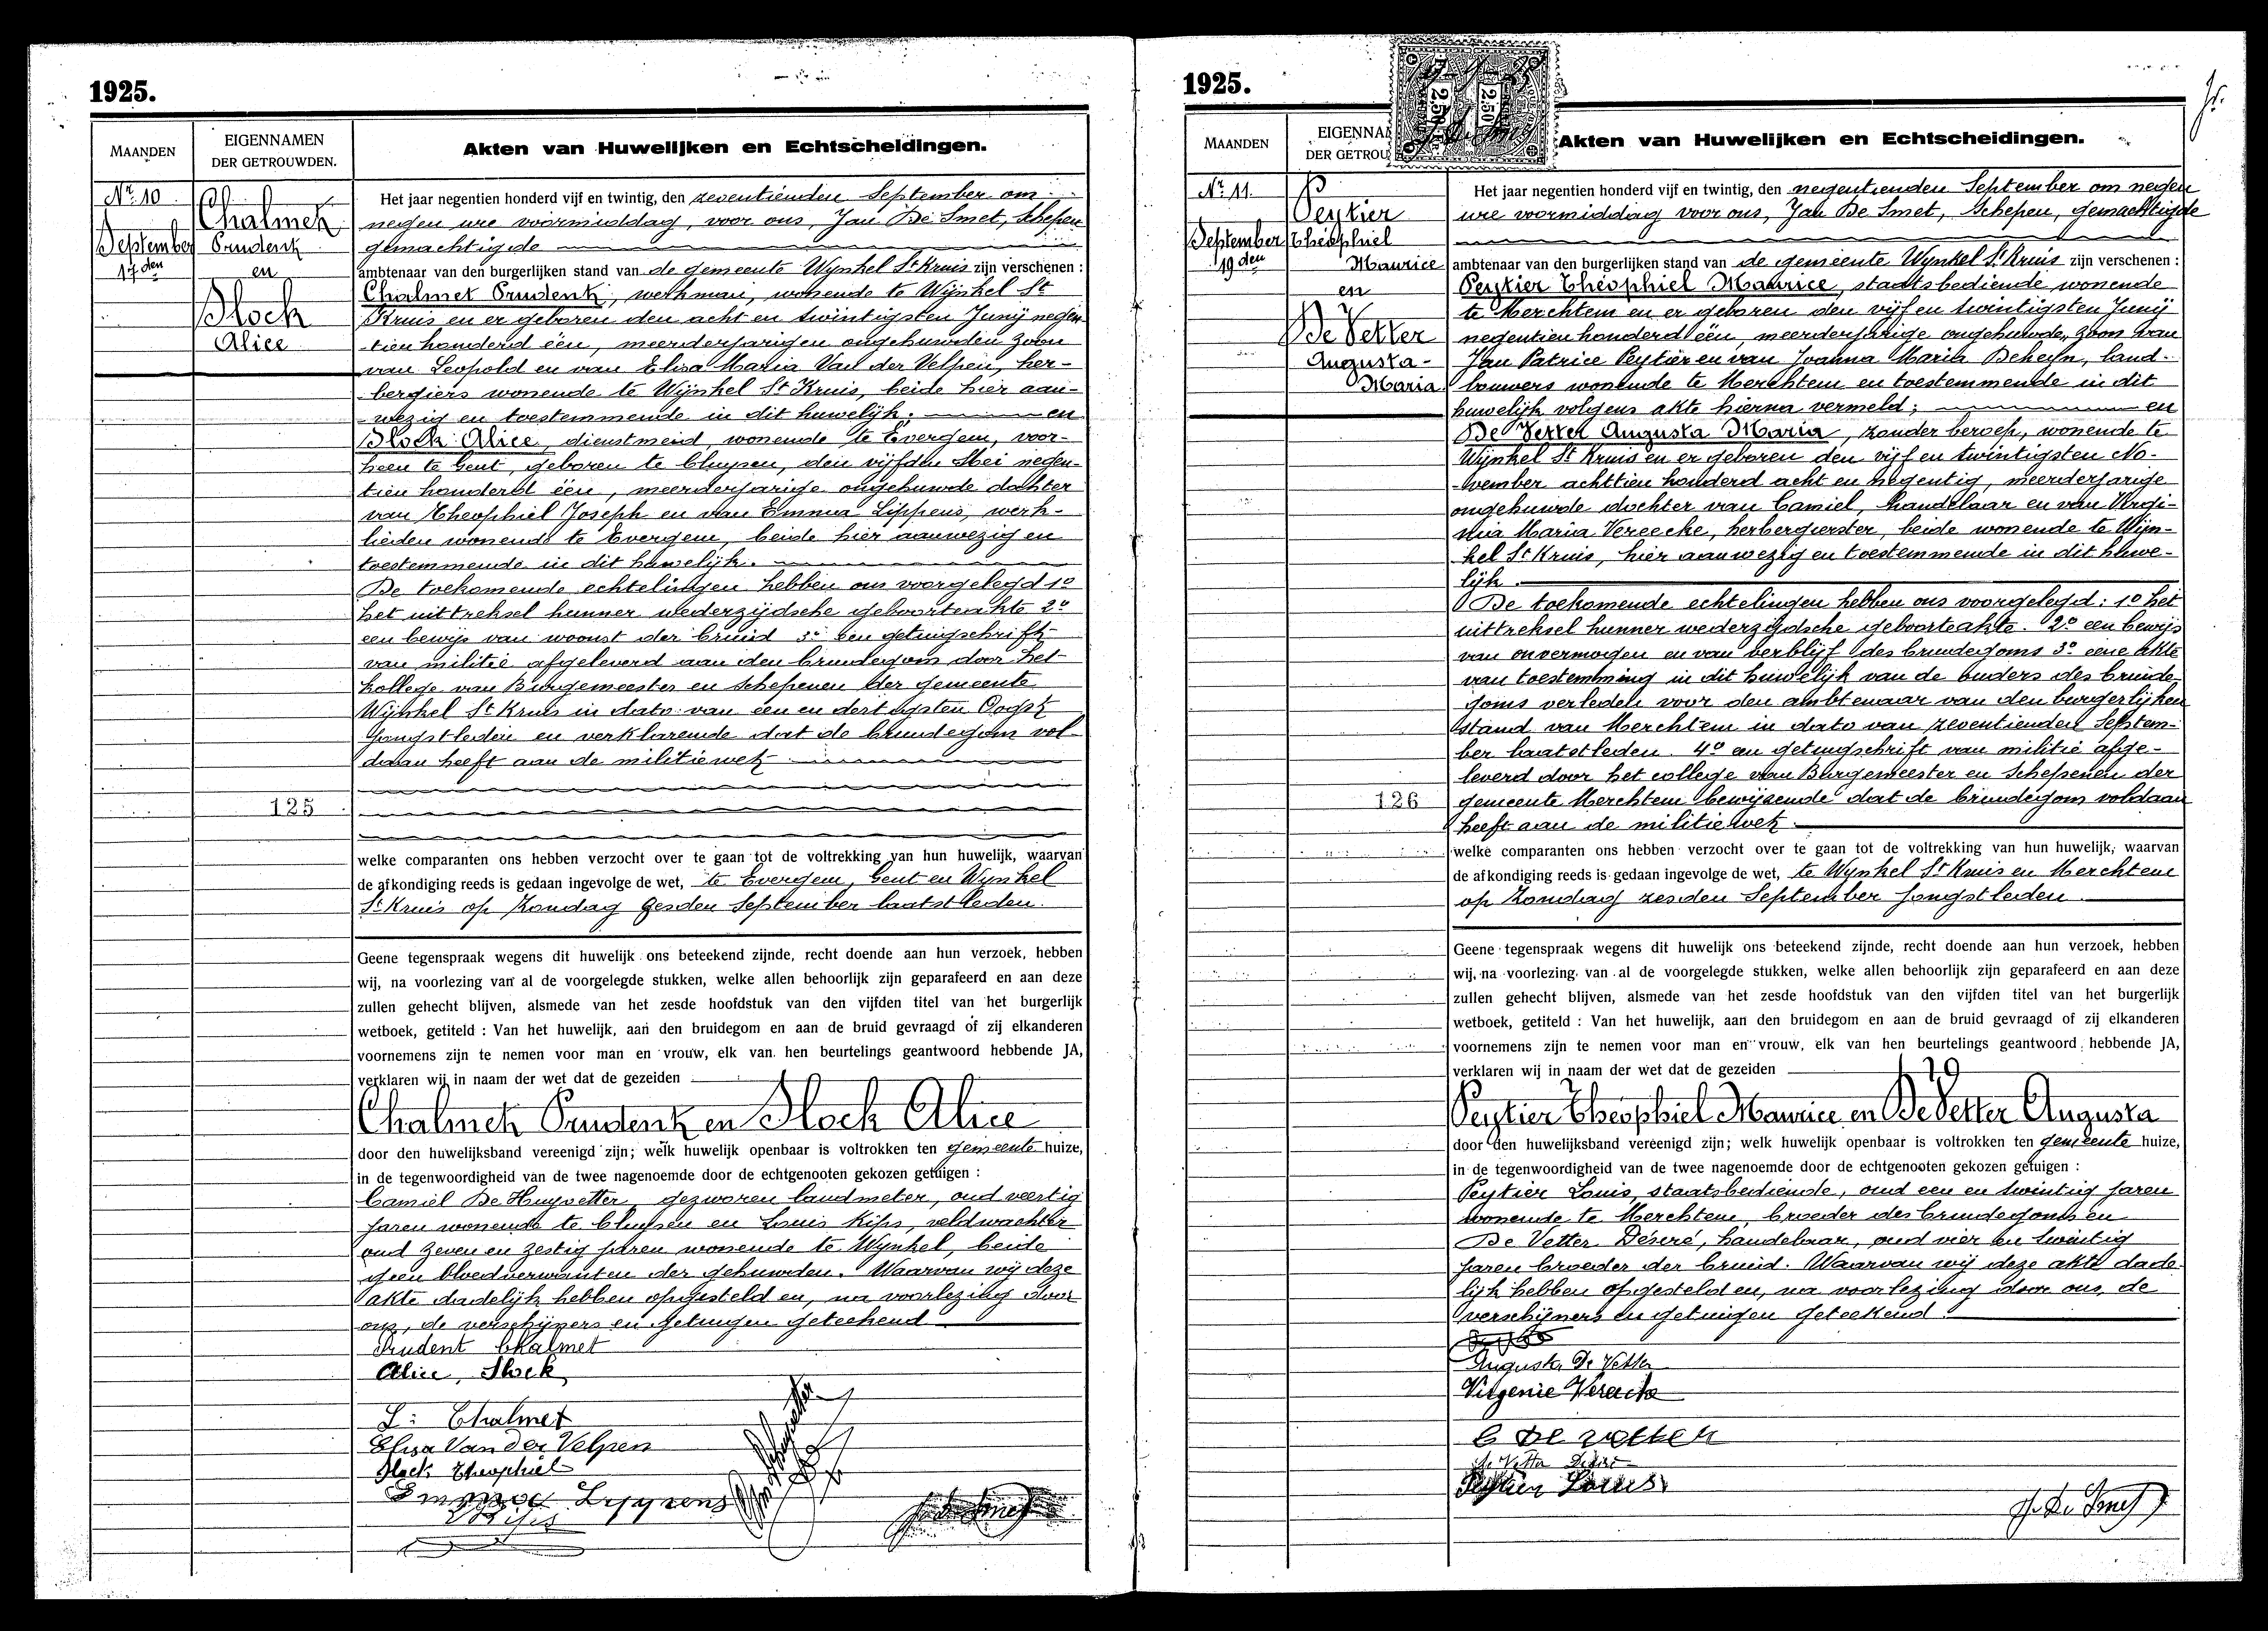 1925.
MAANDEN
EIGENNAMEN
DER GETROUWDEN.
Akten van Huwelijken en Echtscheidingen.
Nr. 10
September
17den
Chalmet
Prudent
en
Block
Alice
125
Het jaar negentien honderd vijf en twintig, den zeventienden September om
negen ure voormiddag, voor ons, Jan De Smet, schepen
gemachtigde
ambtenaar van den burgerlijken stand van de gemeente Wynkel St Kruis zijn verschenen :
Chalmet Prudent, werkman, wonende te Wijnkel St
Kruis en er geboren den acht en twintigsten Junij negen
tien honderd één, meerderjarigen ongehuwden zoon
van Leopold en van Elisa Maria Van der Velpen, her-
bergiers wonende te Wijnkel St Kruis, beide hier aan-
wezig en toestemmende in dit huwelijk. en
Block Alice, dienstmeid, wonende te Evergem, voor-
heen te Gent, geboren te Cluysen, den vijfden Mei negen-
tien honderd één, meerderjarige ongehuwde dochter
van Theophiel Joseph en van Emma Lippens, werk-
lieden wonende te Evergem, beide hier aanwezig en
toestemmende in dit huwelijk.
De toekomende echtelingen hebben ons voorgelegd 1o
het uittreksel hunner wederzijdsche geboorteakte 2o
een bewijs van woonst der bruid 3o een getuigschrift
van militie afgeleverd aan den bruidegom door het
kollege van Burgemeester en schepenen der gemeente
Wijnkel St Kruis in dato van één en dertigsten Oogst
jongstleden en verklarende dat de bruidegom vol
daan heeft aan de militiewet
welke comparanten ons hebben verzocht over te gaan tot de voltrekking van hun huwelijk, waarvan
de afkondiging reeds is gedaan ingevolge de wet, te Evergem, Gent en Wynkel
St Kruis op Zondag zesden September laatstleden.
Geene tegenspraak wegens dit huwelijk ons beteekend zijnde, recht doende aan hun verzoek, hebben
wij, na voorlezing van al de voorgelegde stukken, welke allen behoorlijk zijn geparafeerd en aan deze
zullen gehecht blijven, alsmede van het zesde hoofdstuk van den vijfden titel van het burgerlijk
wetboek, getiteld : Van het huwelijk, aan den bruidegom en aan de bruid gevraagd of zij elkanderen
voornemens zijn te nemen voor man en vrouw, elk van hen beurtelings geantwoord hebbende JA,
verklaren wij in naam der wet dat de gezeiden
Chalmet Prudent en Block Alice
door den huwelijksband vereenigd zijn; welk huwelijk openbaar is voltrokken ten gemeente huize,
in de tegenwoordigheid van de twee nagenoemde door de echtgenooten gekozen getuigen :
Camiel De Huyvetter, gezworen landmeter, oud veertig
jaren wonende te Cluysen en Louis Kips, veldwachter
oud zeven en zestig jaren wonende te Wynkel, beide
geen bloedverwanten der gehuwden. Waarvan wij deze
akte dadelijk hebben opgesteld en, na voorlezing door
ons, de verschijners en getuigen geteekend
Prudent Chalmet
Alice, Block
L: Chalmet
Elisa Van der Velpen
Block Theophiel
Emma Lippens
1925.
MAANDEN
EIGENNA
DER GETROU
2,50 2,50
Akten van Huwelijken en Echtscheidingen.
Nr. 11.
September
19den
Peytier
Théophiel
Maurice
en
De Vetter
Augusta-
Maria
126
Het jaar negentien honderd vijf en twintig, den negentienden September om negen
ure voormiddag voor ons, Jan De Smet, schepen, gemachtigde
ambtenaar van den burgerlijken stand van de gemeente Wynkel St Kruis zijn verschenen :
Peytier Théophiel Maurice, staatsbediende wonende
te Merchtem en er geboren den vijf en twintigsten Junij
negentien honderd één, meerderjarige ongehuwde, zoon van
Jan Patrice Peytier en van Joanna Maria Beheyn, land-
bouwers wonende te Merchtem en toestemmende in dit
huwelijk volgens akte hierna vermeld; en
De Vetter Augusta Maria, zonder beroep, wonende te
Wijnkel St Kruis en er geboren den vijf en twintigsten No-
vember achttien honderd acht en negentig, meerderjarige
ongehuwde dochter van Camiel, handelaar en van Virgi-
nia Maria Vereecke, herbergierster, beide wonende te Wijn-
kel St Kruis, hier aanwezig en toestemmende in dit huwe-
lijk.
De toekomende echtelingen hebben ons voorgelegd: 1o het
uittreksel hunner wederzijdsche geboorteakte. 2o een bewijs
van onvermogen en van verblijf des bruidegoms 3o eene akte
van toestemming in dit huwelijk van de ouders des bruide-
goms verleden voor den ambtenaar van den burgerlijken
stand van Merchtem in dato van zeventienden Septem-
ber laatstleden. 4o een getuigschrift van militie afge-
leverd door het college van Burgemeester en Schepenen der
gemeente Merchtem bewijzende dat de bruidegom voldaan
heeft aan de militiewet.
welke comparanten ons hebben verzocht over te gaan tot de voltrekking van hun huwelijk, waarvan
de afkondiging reeds is gedaan ingevolge de wet, te Wynkel St Kruis en Merchtem
op Zondag zesden September jongstleden.
Geene tegenspraak wegens dit huwelijk ons beteekend zijnde, recht doende aan hun verzoek, hebben
wij, na voorlezing van al de voorgelegde stukken, welke allen behoorlijk zijn geparafeerd en aan deze
zullen gehecht blijven, alsmede van het zesde hoofdstuk van den vijfden titel van het burgerlijk
wetboek, getiteld : Van het huwelijk, aan den bruidegom en aan de bruid gevraagd of zij elkanderen
voornemens zijn te nemen voor man en vrouw, elk van hen beurtelings geantwoord hebbende JA,
verklaren wij in naam der wet dat de gezeiden
Peytier Théophiel Maurice en De Vetter Augusta
door den huwelijksband vereenigd zijn; welk huwelijk openbaar is voltrokken ten gemeente huize,
in de tegenwoordigheid van de twee nagenoemde door de echtgenooten gekozen getuigen :
Peytier Louis, staatsbediende, oud een en twintig jaren
wonende te Merchtem, broeder des bruidegoms en
De Vetter Désiré, handelaar, oud vier en twintig
jaren broeder der bruid. Waarvan wij deze akte dade-
lijk hebben opgesteld en, na voorlezing door ons, de
verschijners en getuigen geteekend.
Augusta De Vetter
Virgenie Vereecke
C De vetter
De Vetter Désiré
Peytier Louis
J. De Smet